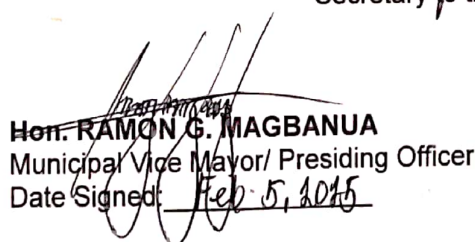 Secretary
Hon. RAMON G. MAGBANUA
Municipal Vice Mayor/ Presiding Officer
Date Signed: Feb. 5, 2025